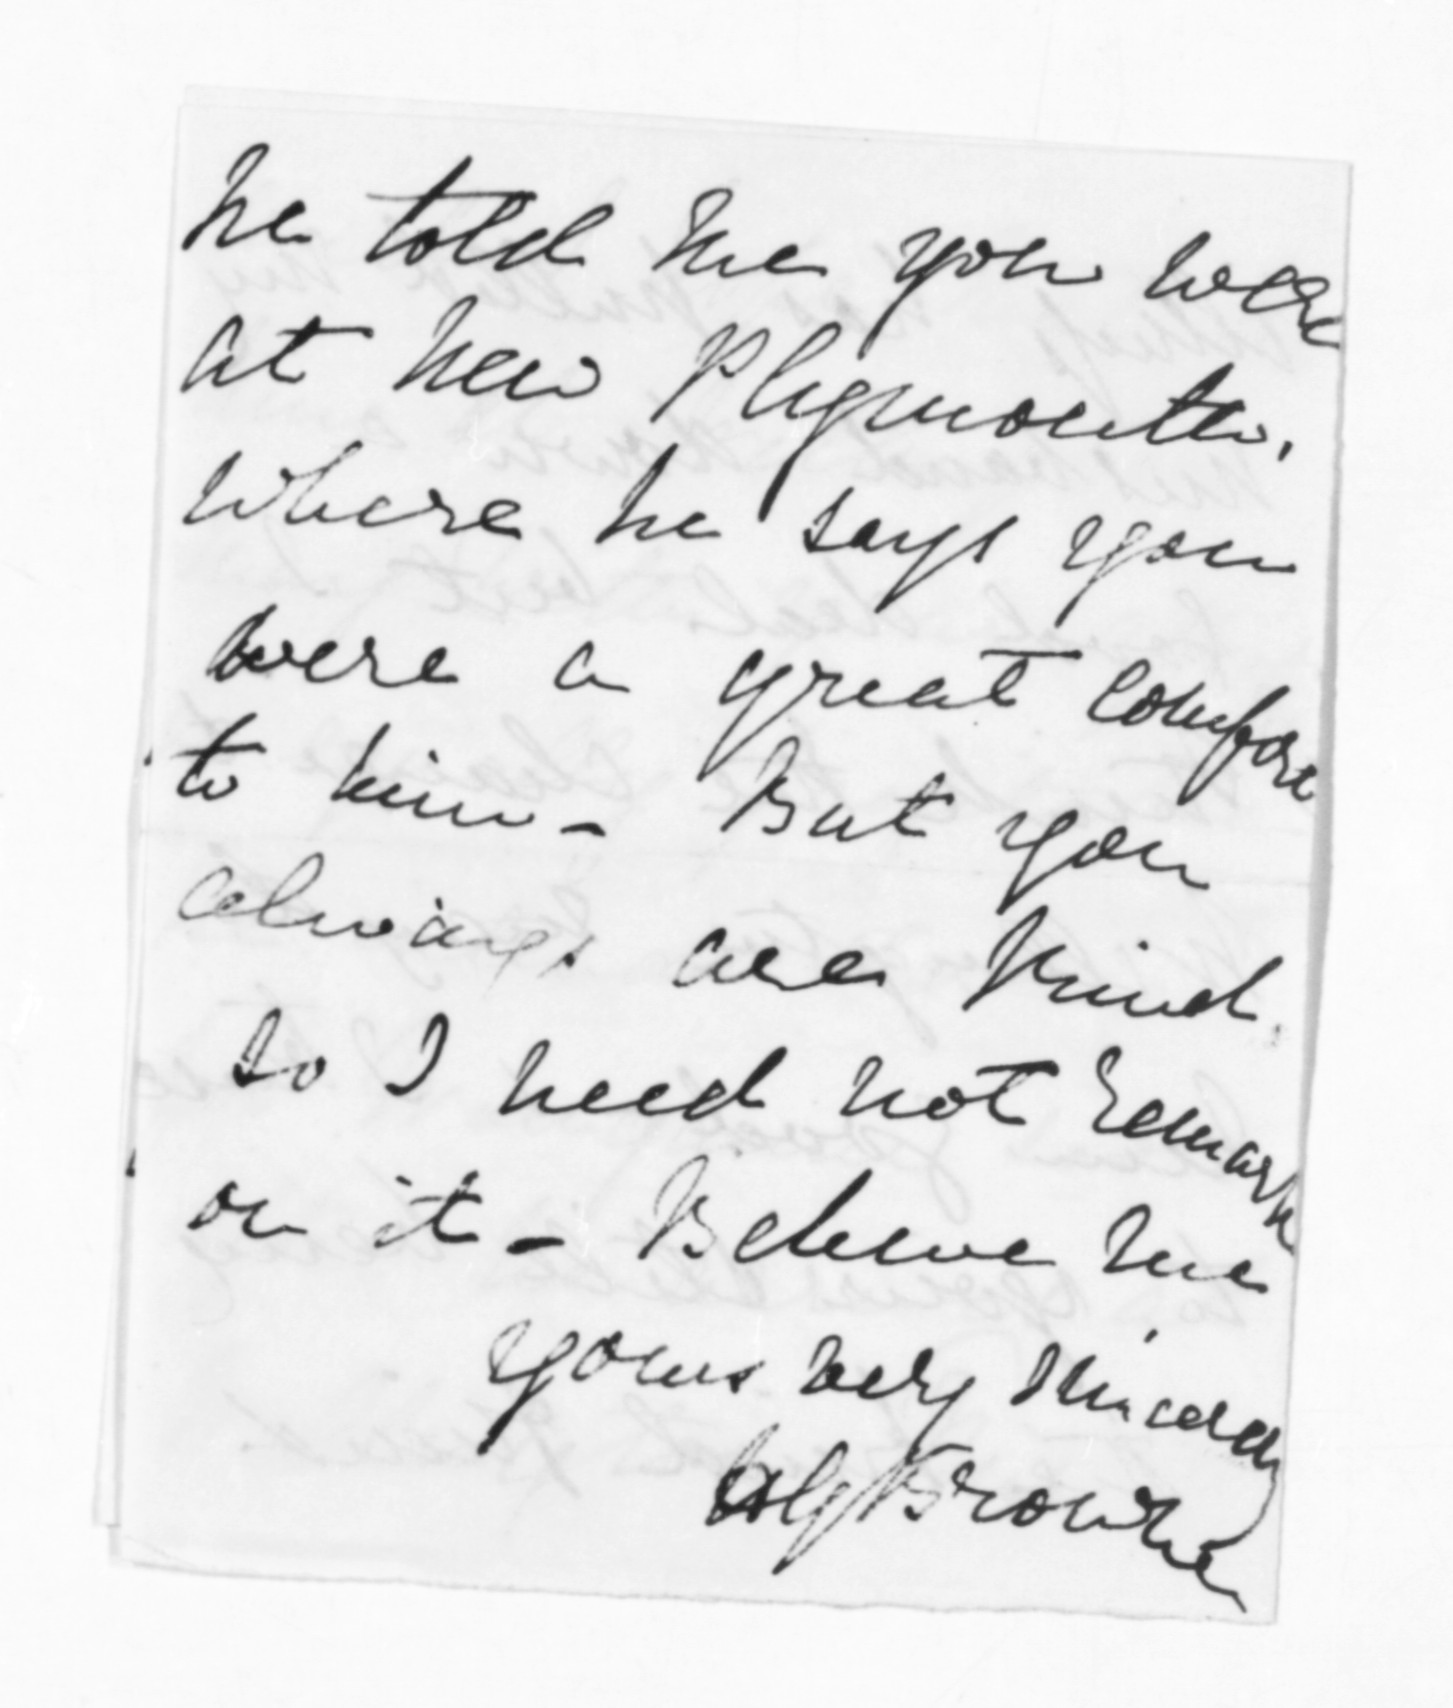 he told me you were
at New Plymouth,
where he says you
were a great comfort
to him - But you
always are kind,
so I need not remark
on it - Believe me
yours very sincerely
Browne